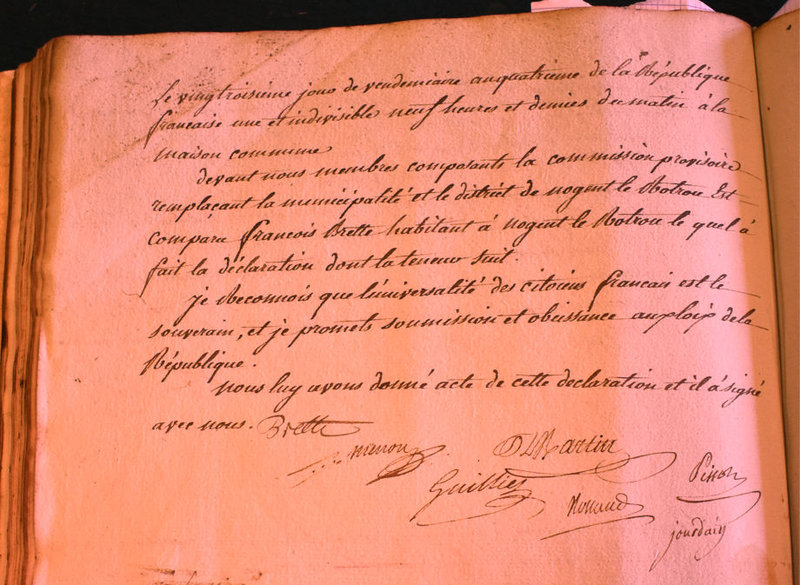 Le vingtroisième jour de vendemiaire anquatrième de la République
francaise une et indivisible neuf heures et demies du matin à la
maison commune
devant nous membres composants la commission provisoire
remplaçant la municipalité et le district de nogent le Rotrou Est
comparu francois Brette habitant à nogent le Rotrou le quel à
fait la déclaration dont la teneur suit.
je Reconnois que l'universalité des citoiens francais est le
souverain, et je promets soumission et obeissance auploix dela
République.
nous luy avons donné acte de cette declaration et il à signé
avec nous. Brette
menou
Martin
Guillier
Pinon
jourdain